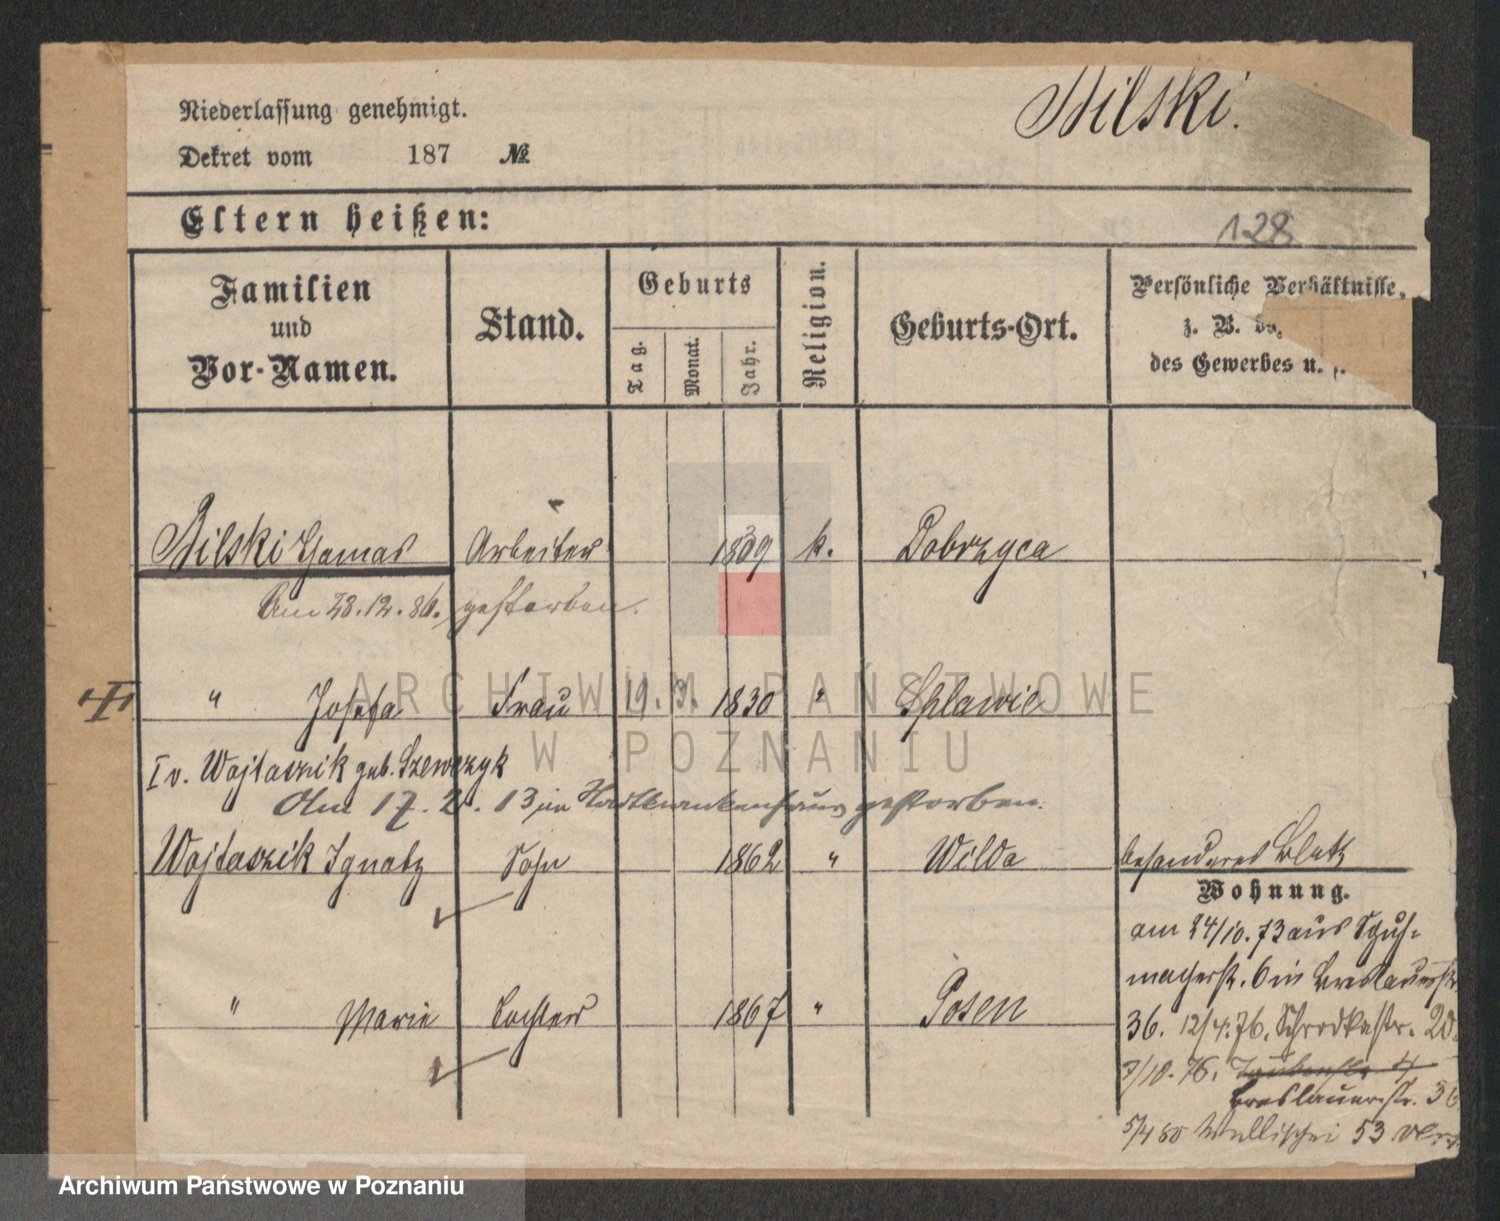 Niederlassung genehmigt.
Bilski.
Dekret vom 187 №
Eltern heißen:
128
Familien und Vor-Namen.
Stand.
Geburts
Tag.
Monat.
Jahr.
Religion.
Geburts-Ort.
Persönliche Verhältnisse,
z. B.
des Gewerbes u.
Bilski Thomas Arbeiter 1839 k. Dobrzyca
Am 28.12.86. gestorben.
" Josefa Frau 19. 3. 1830 " Splawie
I v. Wojtaszik geb. Szewczyk
Am 17. 2. 13 im Stadtkrankenhaus gestorben.
Wojtaszik Ignatz Sohn 1862 " Wilda besonderes Blatt
Wohnung.
am 24/10.73 aus Schuh-
macherstr. 6 in Breslauerstr
" Marie Tochter 1867 " Posen
36. 12/4.76. Schrodkastr. 20.
7/10.76. Taubenstr 4
Breslauerstr. 36
5/4 80 Wallischei 53
ARCHIWUM PAŃSTWOWE
W POZNANIU
Archiwum Państwowe w Poznaniu